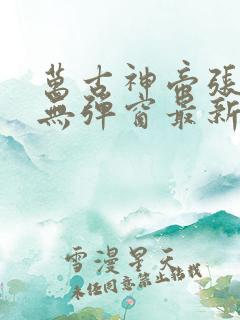 萬古神帝張
無彈窗最新
雪漫星天
未经同意禁止转载